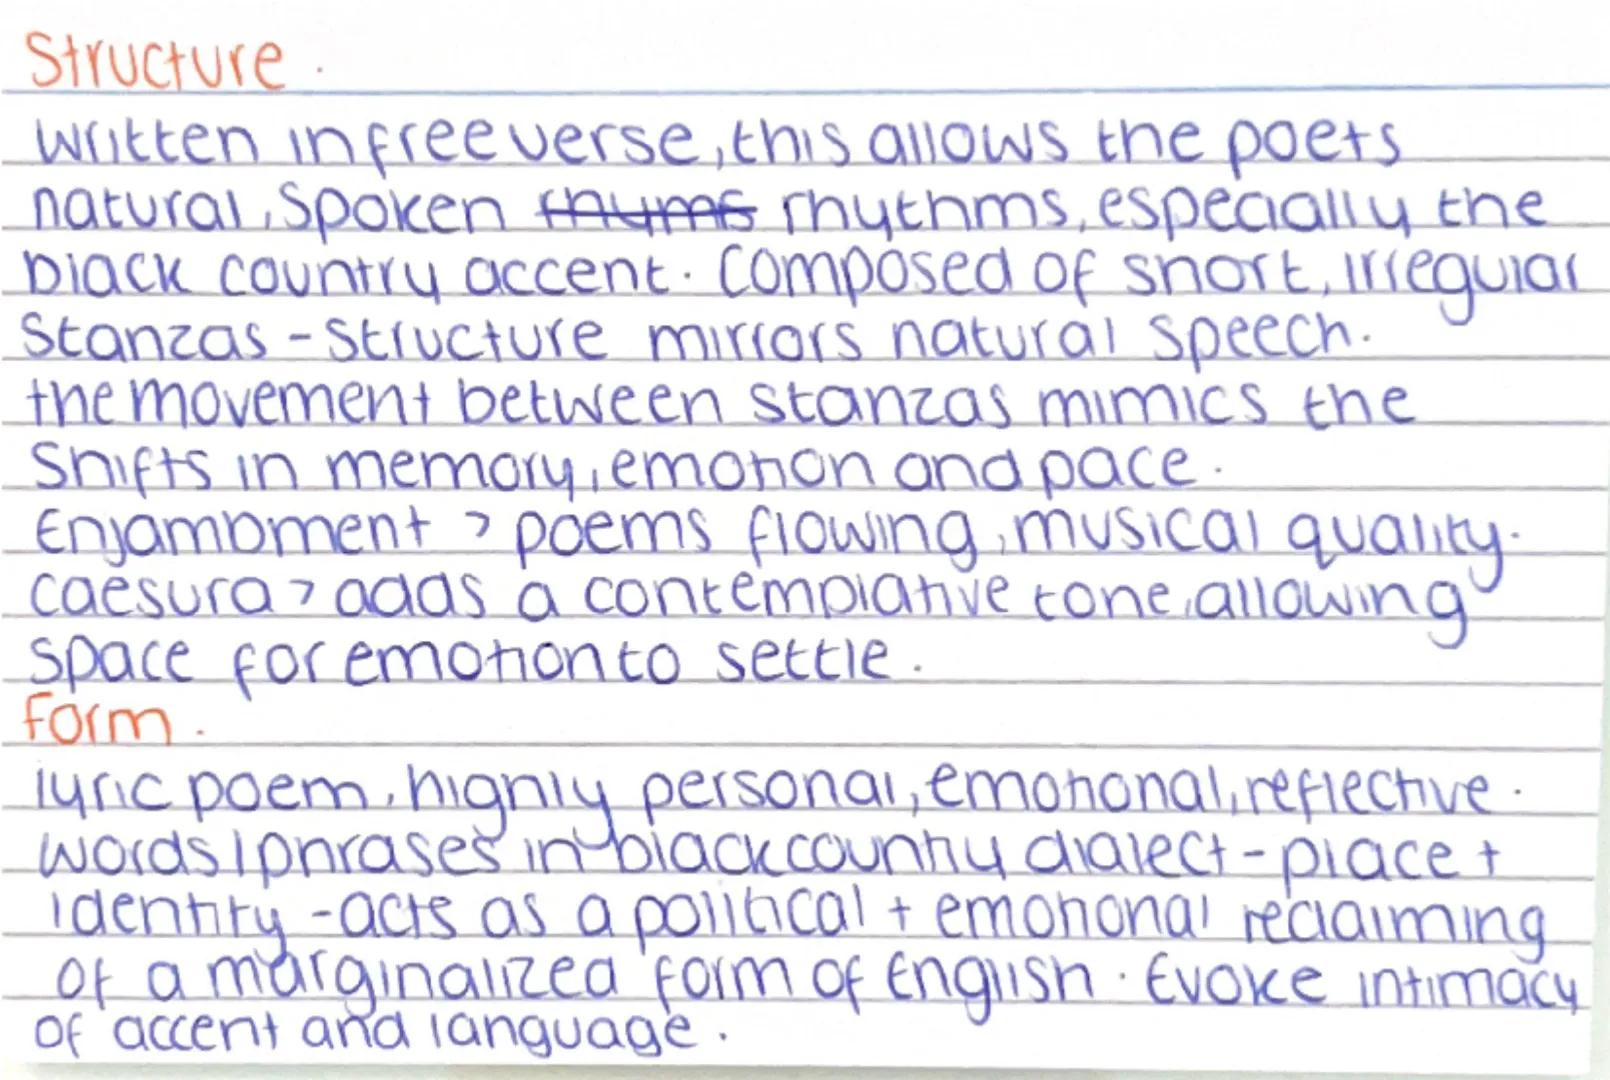 Structure.
Written in free verse, this allows the poets
natural, spoken rhythms, especially the
black country accent. Composed of short, irregular
stanzas - structure mirrors natural speech.
the movement between stanzas mimics the
shifts in memory, emotion and pace.
Enjambment > poems flowing, musical quality.
caesura > adds a contemplative tone, allowing
space for emotion to settle.
Form.
lyric poem, highly personal, emotional, reflective.
words/phrases in black country dialect - place +
identity - acts as a political + emotional reclaiming
of a marginalized form of English. Evoke intimacy
of accent and language.